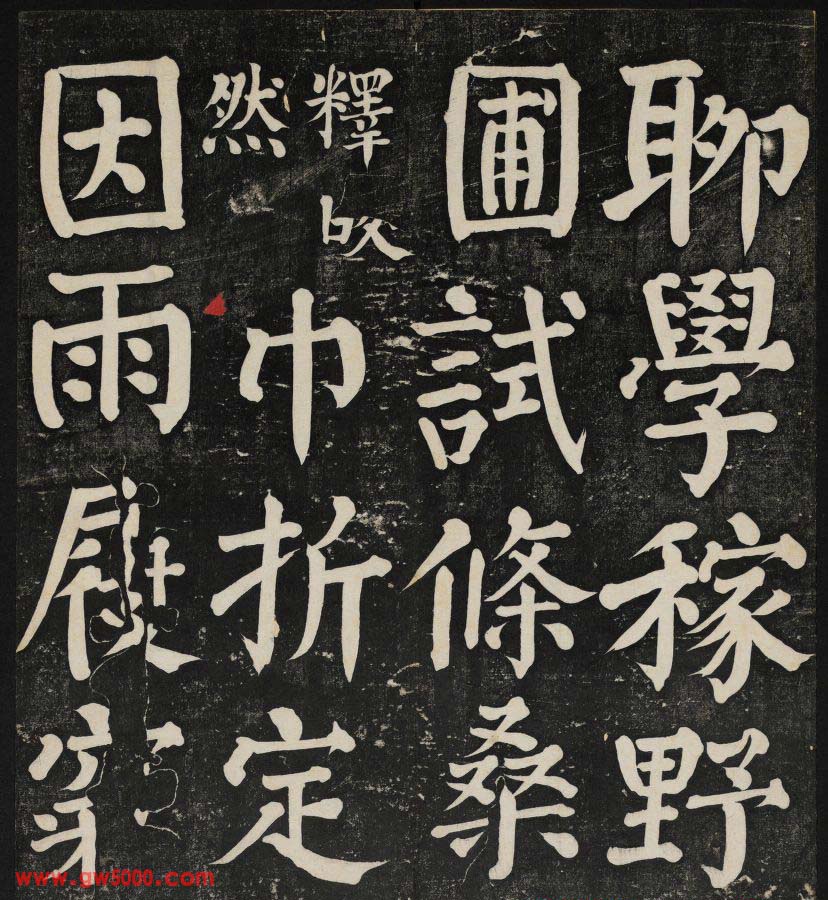 聊學稼野
圃試條桑
釋
然
巾折定
因雨屐穿
www.gw5000.com